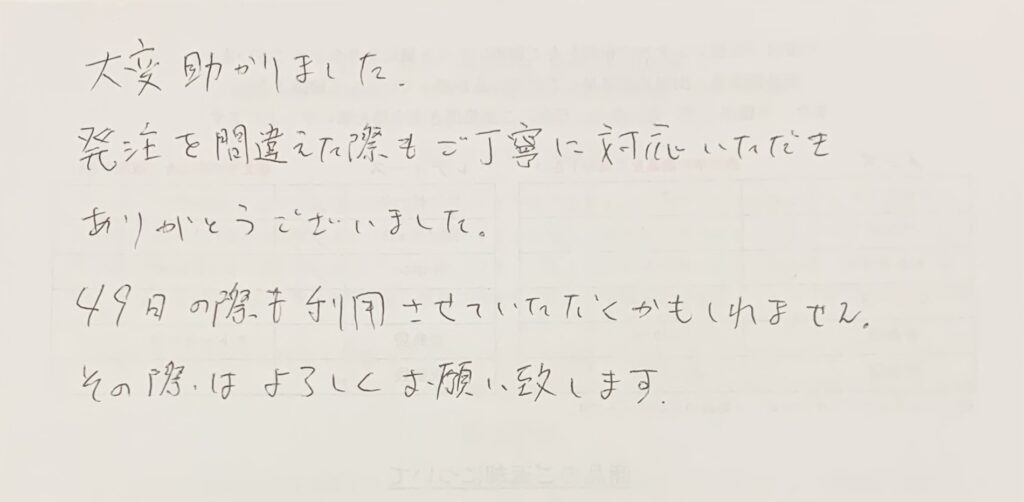 大変助かりました.
発注を間違えた際もご丁寧に対応いただき
ありがとうございました。
49日の際も利用させていただくかもしれません.
その際はよろしくお願い致します.